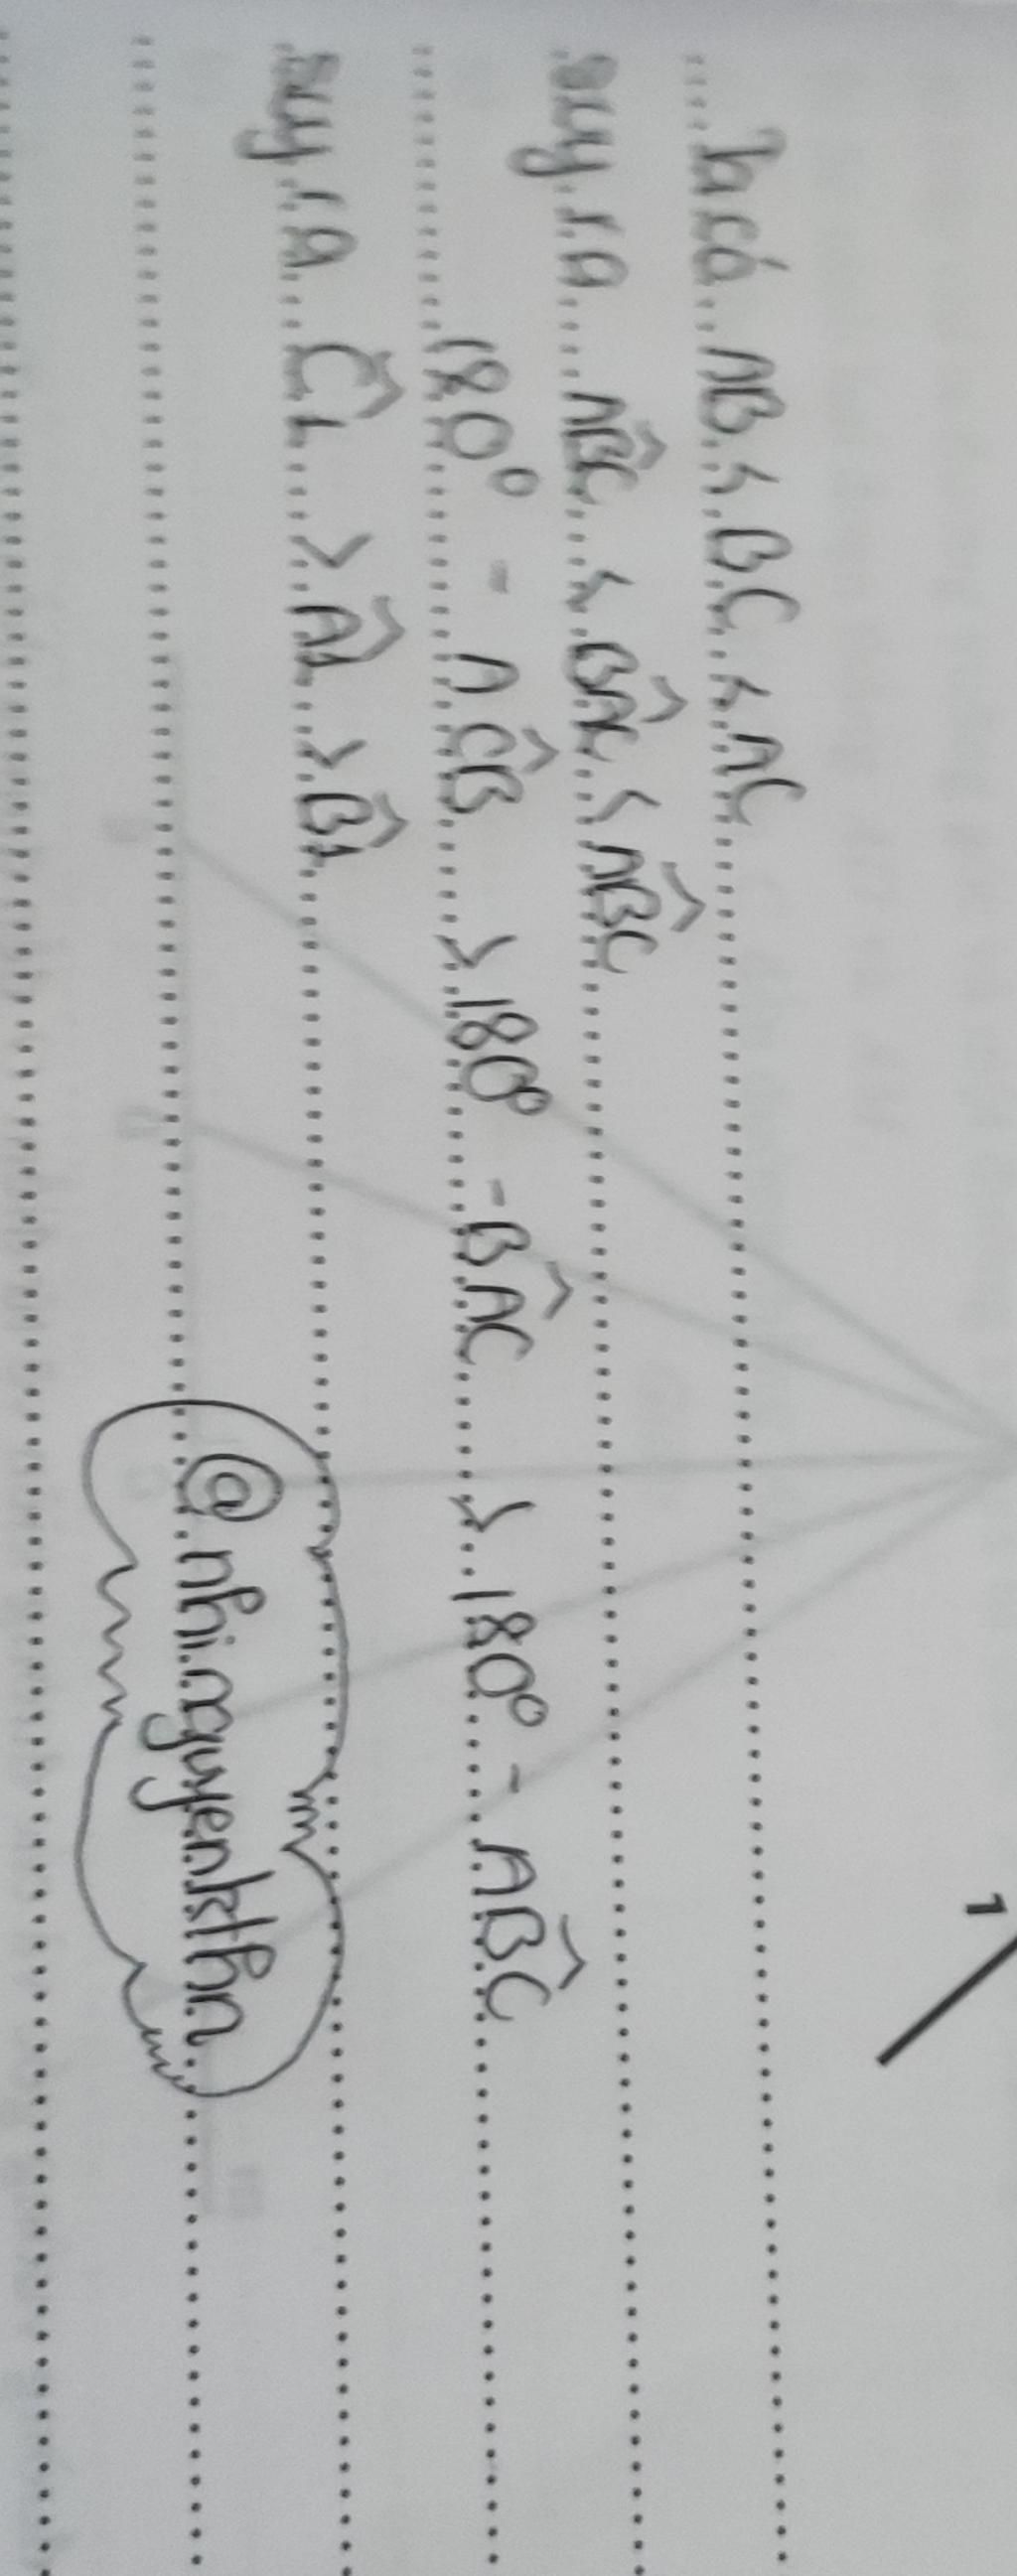 Ta có AB < BC < AC
suy ra AB̂C < BÂC < AB̂C
180° - AĈB > 180° - BÂC > 180° - AB̂C
suy ra Ĉ1 > Â1 > B̂1
@nhi.nguyenkthn
1